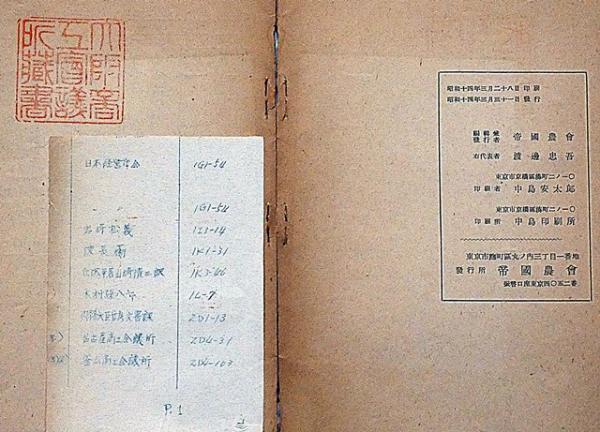 大邱商
工會議
所藏書
日本経営学会 1G1-54
〃 〃 1G1-54
1I1-14
1K1-31
1K3-46
木村禧八郎 1L-7
2D1-13
名古屋商工会議所 2D4-31
釜山商工会議所 2D4-103
P.1
昭和十四年三月二十八日印刷
昭和十四年三月三十一日發行
編輯兼發行者 帝國農會
右代表者 渡邊忠吾
東京市京橋區湊町二ノ一〇
印刷者 中島安太郎
東京市京橋區湊町二ノ一〇
印刷所 中島印刷所
東京市麴町區丸ノ內三丁目一番地
發行所 帝國農會
振替口座東京四〇五二番